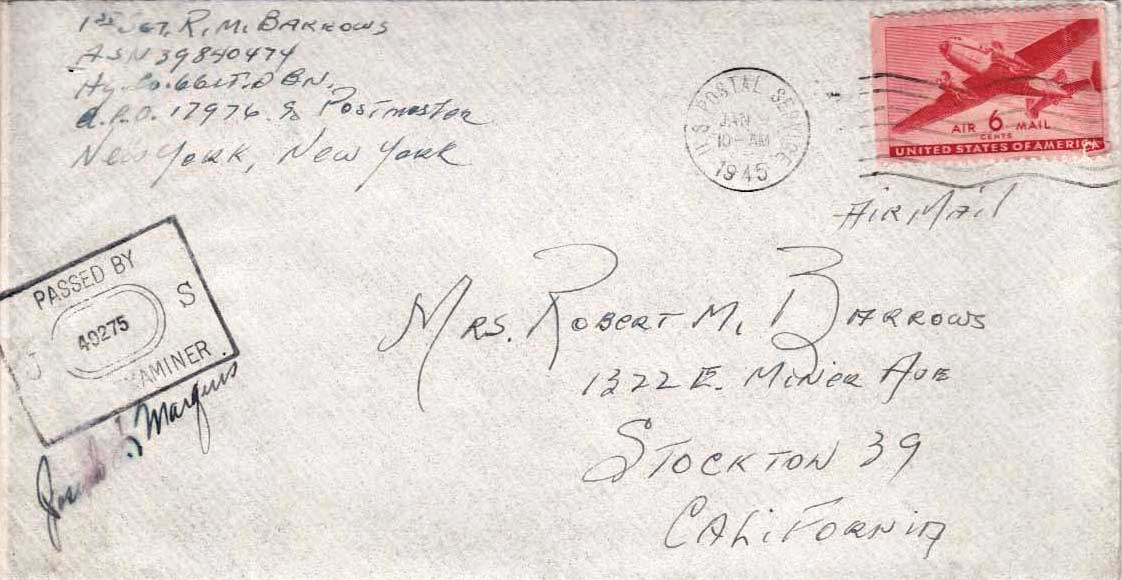 1st Sgt. R. M. BARROWS
ASN 39840474
Hq. Co. 661 T.D BN.
A.P.O. 17976 % Postmaster
New York, New York
U.S. POSTAL SERVICE
JAN
10-AM
1945
AIR 6 MAIL
CENTS
UNITED STATES OF AMERICA
AIR MAIL
PASSED BY
40275
S
EXAMINER
Joseph Marquis
MRS. ROBERT M. BARROWS
1322 E. MINER AVE
STOCKTON 39
CALIFORNIA